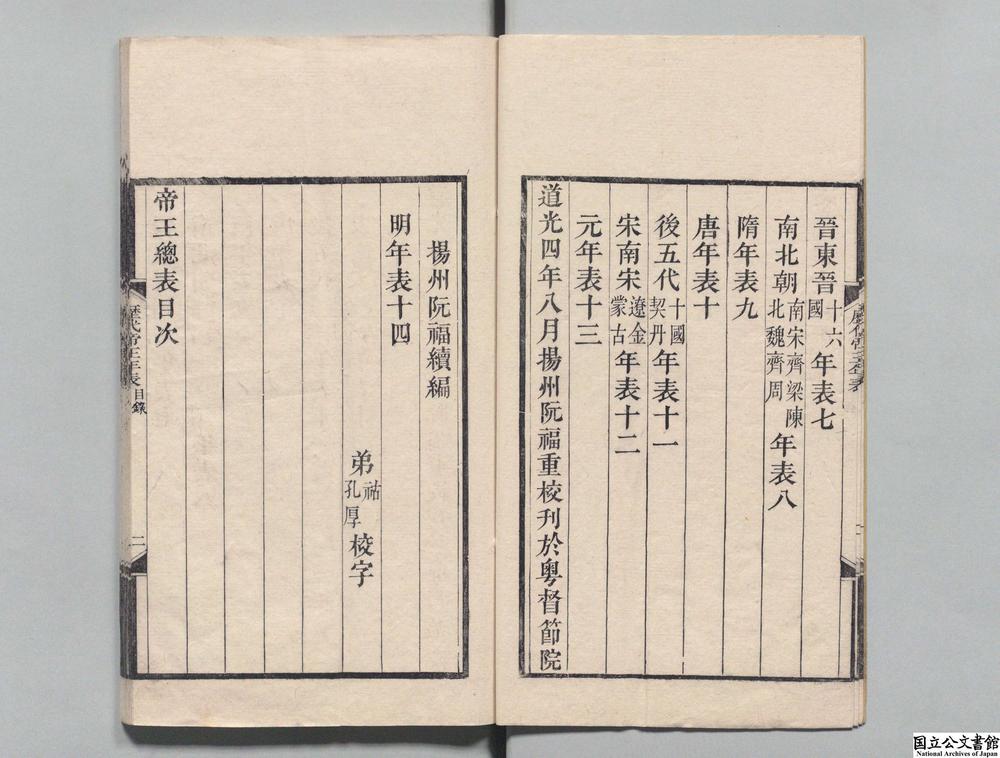 晉東晉十六國年表七
南北朝南宋齊梁陳北魏齊周年表八
隋年表九
唐年表十
後五代十國契丹年表十一
宋南宋遼金蒙古年表十二
元年表十三
道光四年八月揚州阮福重校刊於粤督節院
揚州阮福續編
明年表十四
弟祜孔厚校字
帝王總表目次
歷代帝王年表
目錄
二
国立公文書館
National Archives of Japan